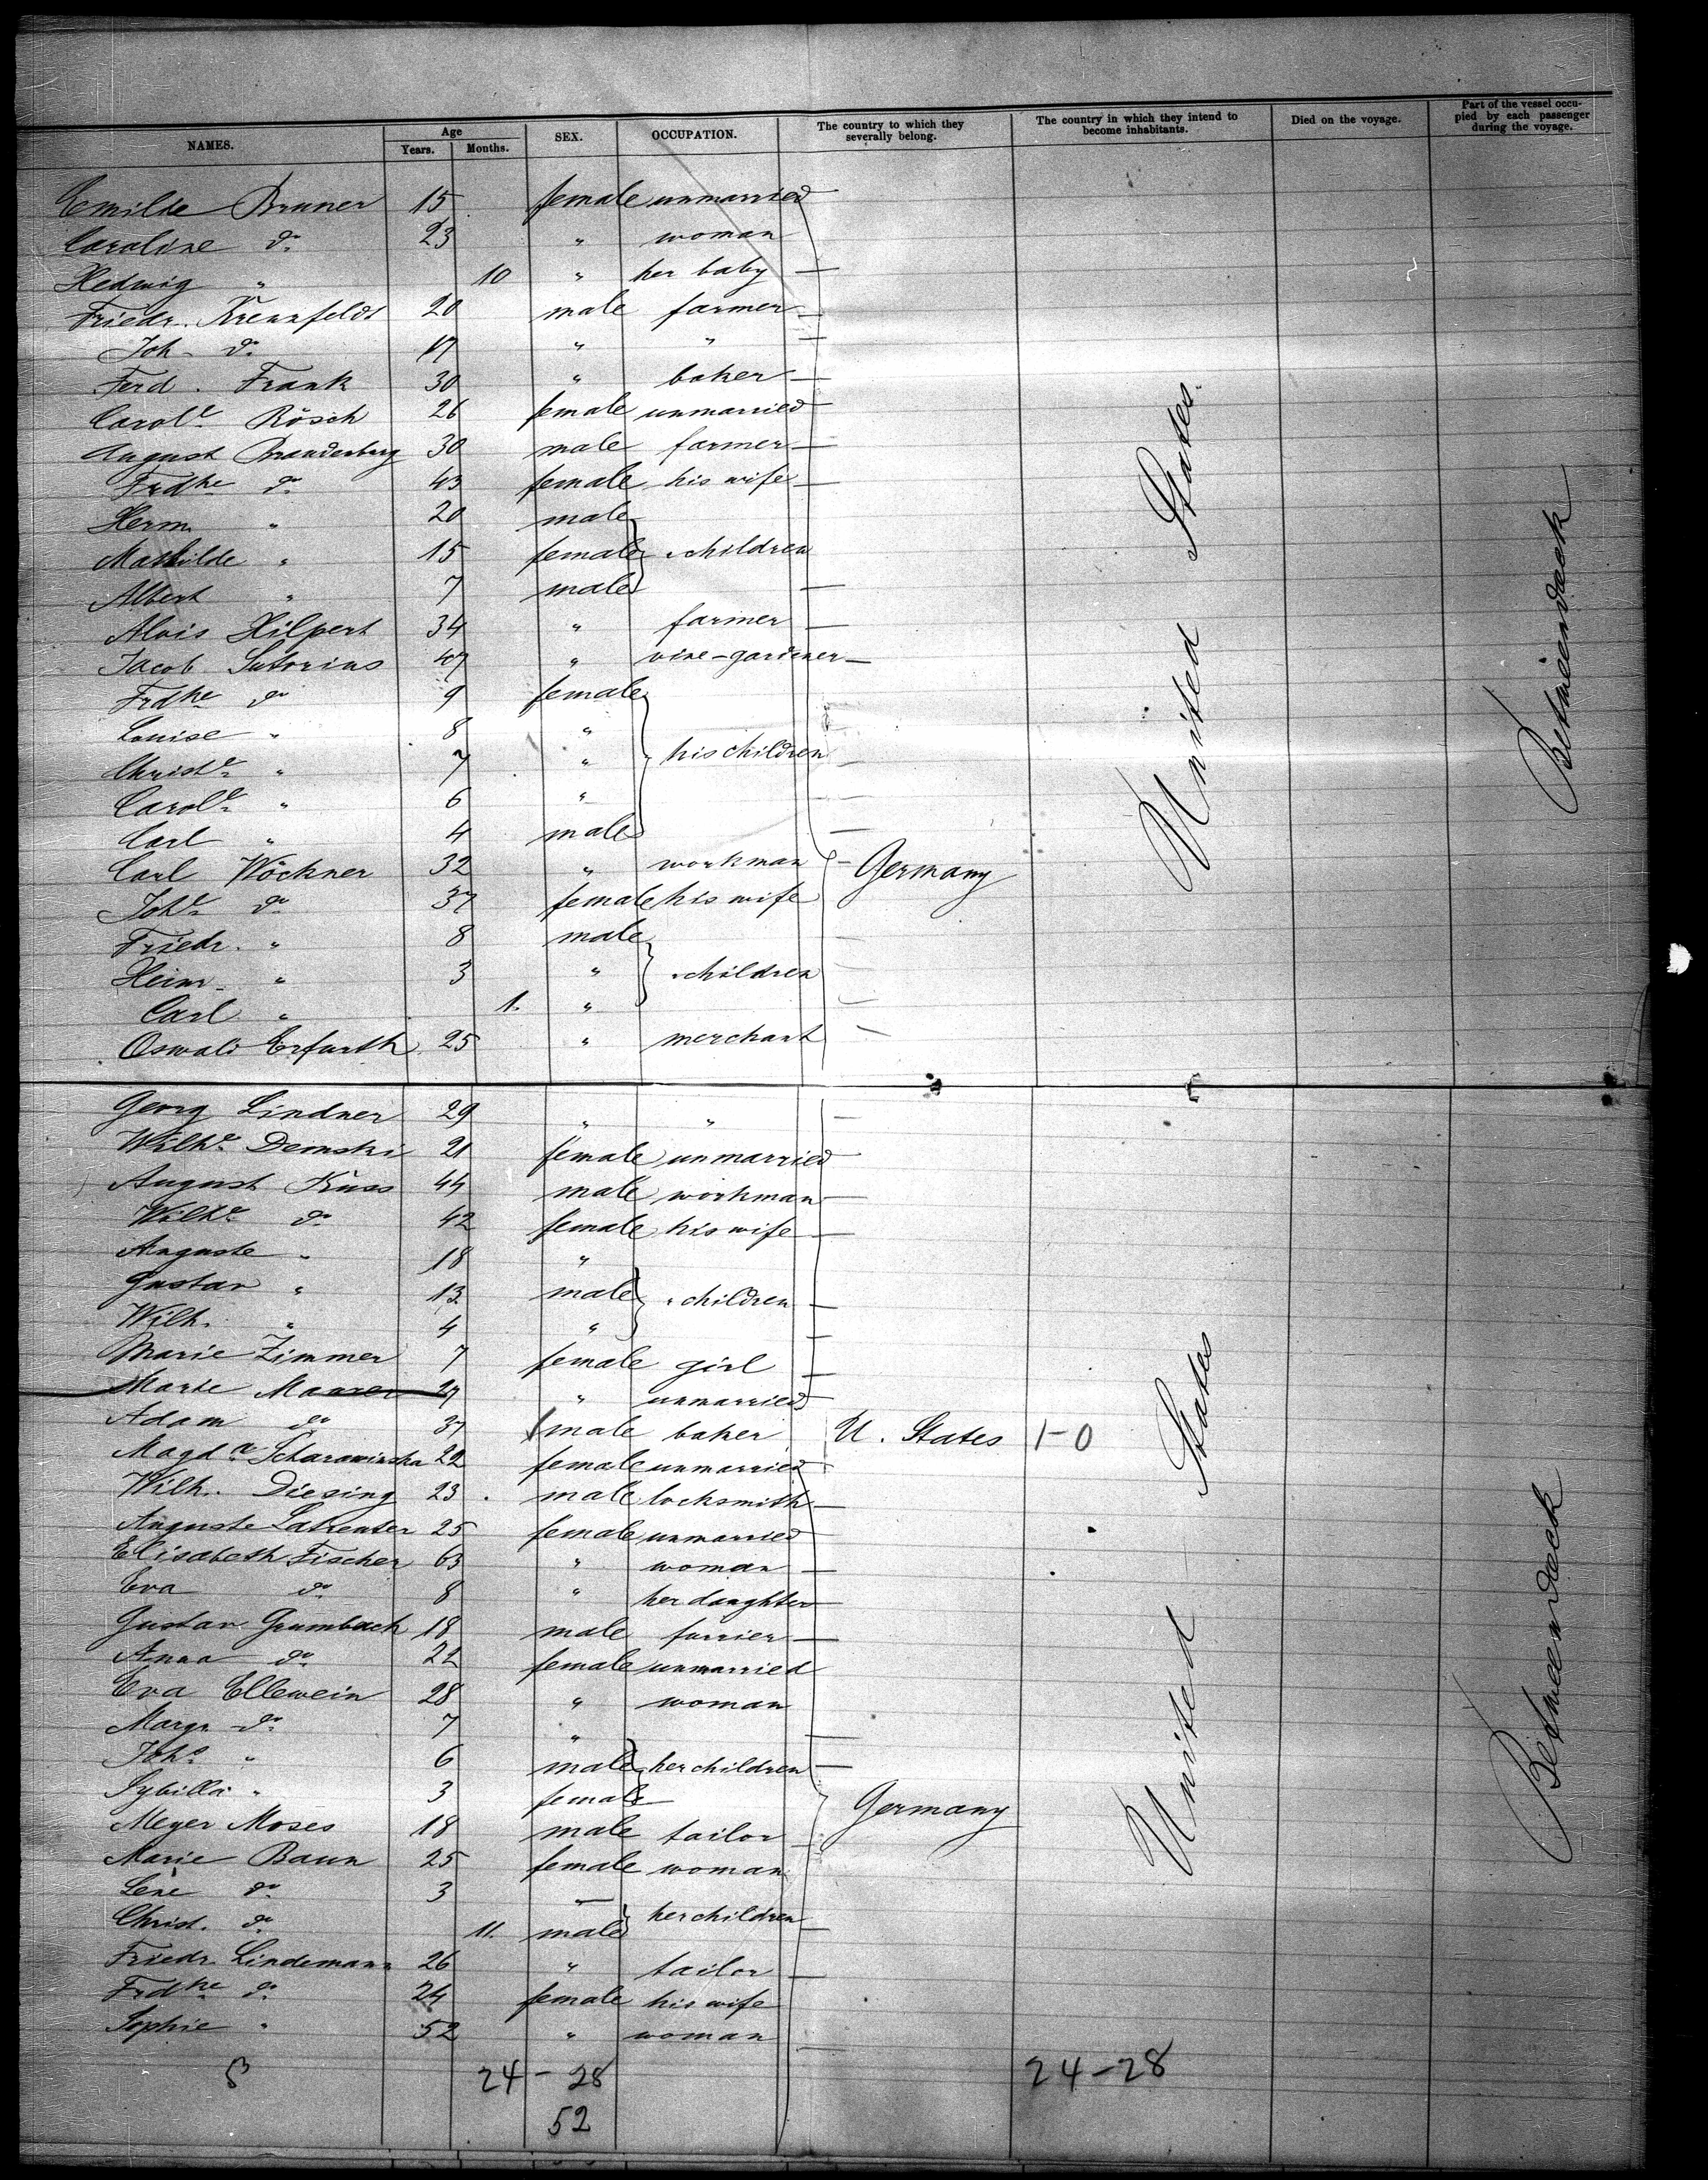 NAMES. Age Years. Months. SEX. OCCUPATION. The country to which they severally belong. The country in which they intend to become inhabitants. Died on the voyage. Part of the vessel occupied by each passenger during the voyage.
Emilde Bruner 15 female unmarried
Caroline do 23 " woman
Hedwig " 10 " her baby
Friedr. 20 male farmer
Joh. do 17 " "
Ferd. Frank 30 " baker
Carole Rösch 26 female unmarried
August Brandenburg 30 male farmer
Frdke do 43 female his wife
Herm. " 20 male
Mathilde " 15 female " children
Albert " 7 male
Alois Hilpert 34 " farmer
Jacob Sutorius 47 " vine-gardener
Frdke do 9 female
Louise " 8 "
Christe " 7 " his children
Carole " 6 "
Carl " 4 male
Carl Wöckner 32 " workman Germany
Johe do 37 female his wife
Friedr. " 8 male
Heinr. " 3 " " children
Carl " 1. "
Oswald Erfurth 25 " merchant
United States.
Betweendeck
Georg Lindner 29 " "
Wilhe Demski 21 female unmarried
August Kuss 44 male workman
Wilhe do 42 female his wife
Auguste " 18 "
Gustav " 13 male " children
Wilh. " 4 "
Marie Zimmer 7 female girl
Marie Maurer 27 " unmarried
Adam do 37 male baker U. States 1-0
Magda 22 female unmarried
Wilh. Diesing 23 male locksmith
Auguste 25 female unmarried
Elisabeth Fischer 63 " woman
Eva do 8 " her daughter
Gustav Grumbach 18 male furrier
Anna do 22 female unmarried
Eva Ellewein 28 " woman
Margr. do 7 "
Johs " 6 male her children
Sybilla " 3 female
Meyer Moses 18 male tailor Germany
Marie Baun 25 female woman
Lene do 3 "
Christ. do 11. male her children
Friedr. Lindemann 26 " tailor
Frdke do 24 female his wife
Sophie " 52 " woman
United States
Betweendeck
24 - 28 24-28
52